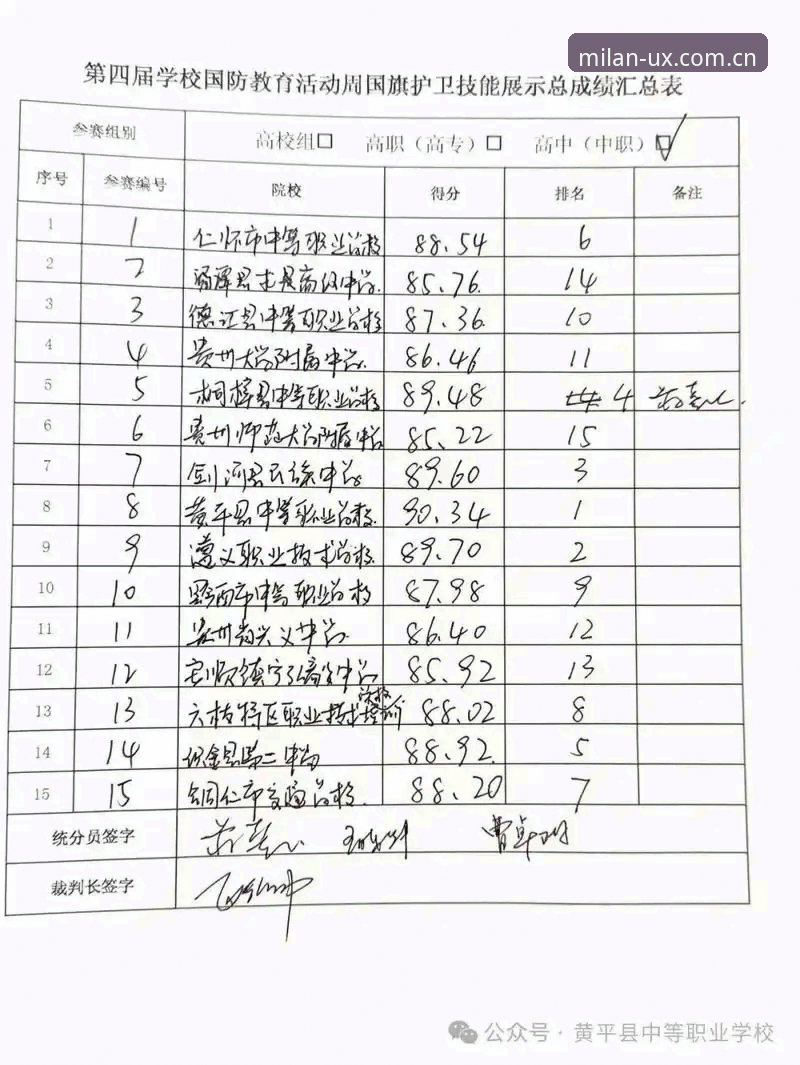 milan-ux.com.cn
第四届学校国防教育活动周国旗护卫技能展示总成绩汇总表
参赛组别 高校组□ 高职（高专）□ 高中（中职）☑
序号 参赛编号 院校 得分 排名 备注
1 1 仁怀市中等职业学校 88.54 6
2 2 湄潭县求是高级中学 85.76 14
3 3 德江县中等职业学校 87.36 10
4 4 贵州大学附属中学 86.46 11
5 5 桐梓县中等职业学校 89.48 4
6 6 贵州师范大学附属中学 85.22 15
7 7 剑河县民族中学 89.60 3
8 8 黄平县中等职业学校 90.34 1
9 9 遵义职业技术学校 89.70 2
10 10 黔西市中等职业学校 87.98 9
11 11 贵州省兴义中学 86.40 12
12 12 安顺镇宁 中学 85.92 13
13 13 六枝特区职业技术学校 88.02 8
14 14 织金县第二中学 88.92 5
15 15 铜仁市交通学校 88.20 7
统分员签字
裁判长签字
公众号·黄平县中等职业学校